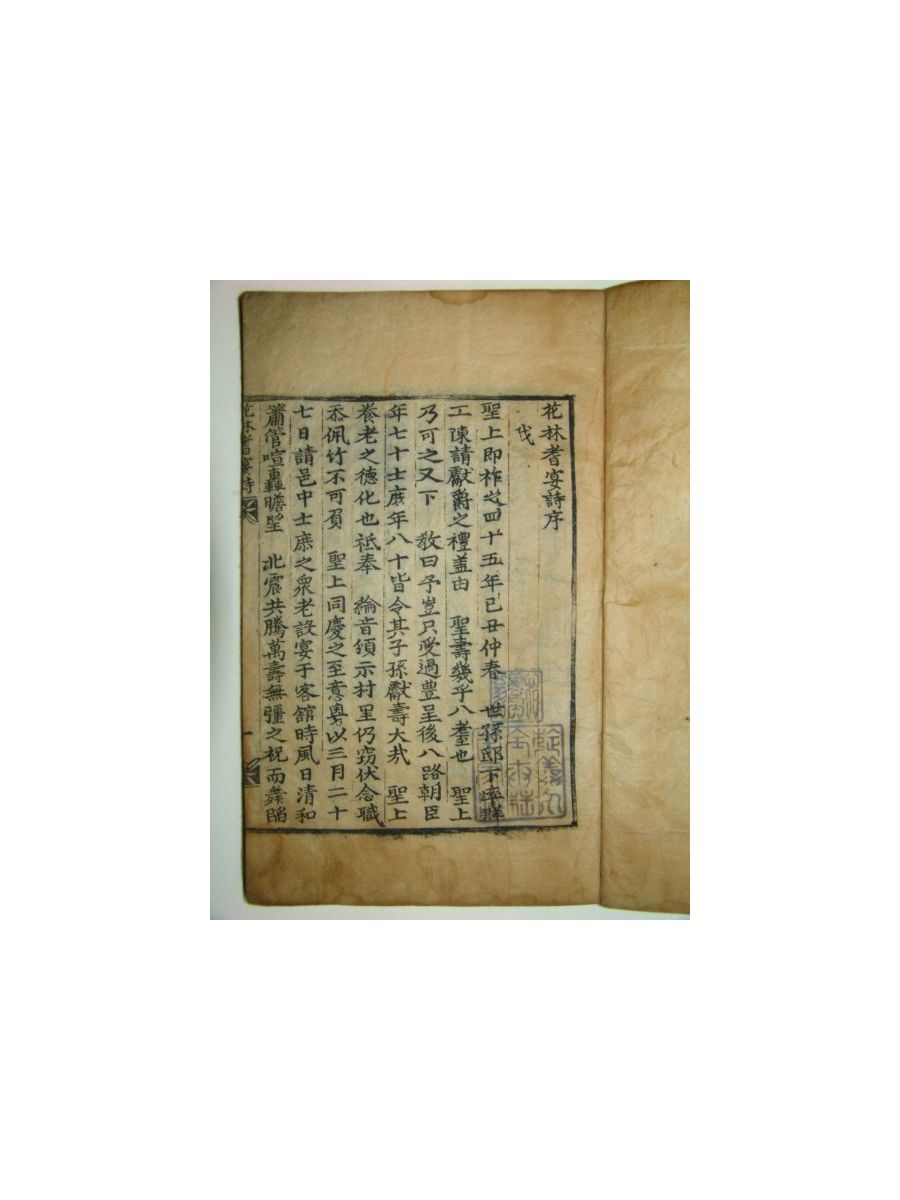 花林耆宴詩序
戊
聖上即祚之四十五年己丑仲春 世孫邸下率群
工陳請獻爵之禮盖由 聖壽幾乎八耋也 聖上
乃可之又下 教曰予豈只受過豊呈後八路朝臣
年七十士庶年八十皆令其子孫獻壽大哉 聖上
養老之德化也祗奉 綸音頒示村里仍竊伏念職
忝佩竹不可負 聖上同慶之至意粤以三月二十
七日請邑中士庶之衆老設宴于客舘時風日清和
簫管喧轟瞻望 北宸共騰萬壽無疆之祝而舞蹈
花林耆宴詩
一